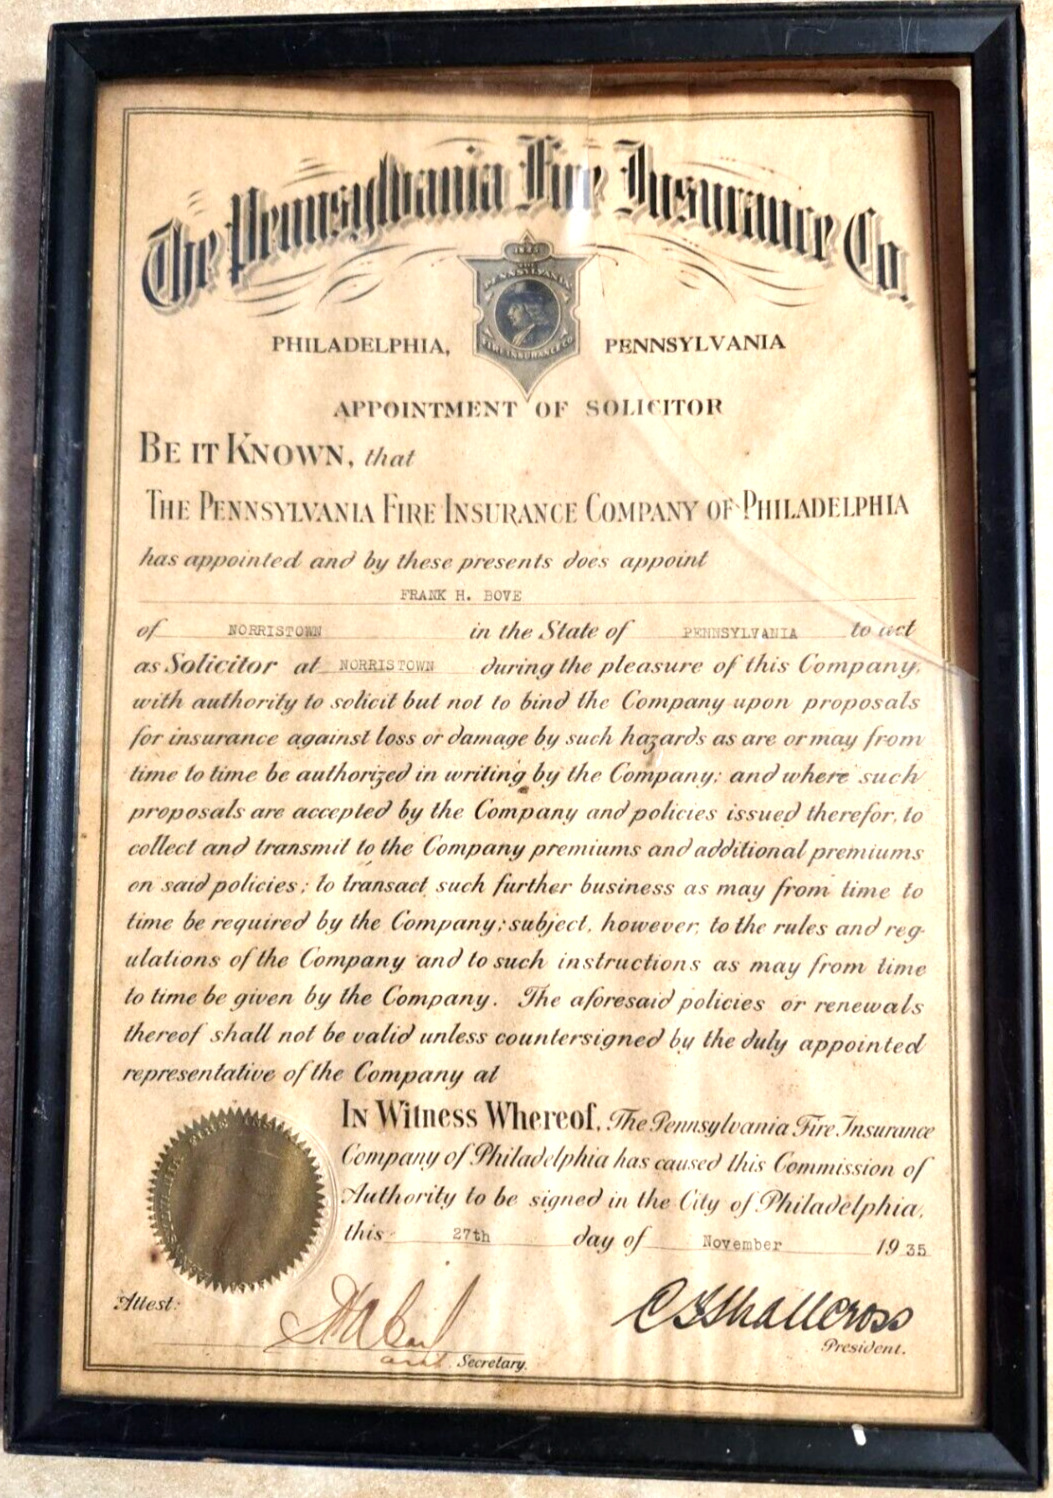 The Pennsylvania Fire Insurance Co.
1825
THE
PENNSYLVANIA
FIRE INSURANCE CO
PHILADELPHIA, PENNSYLVANIA
APPOINTMENT OF SOLICITOR
BE IT KNOWN, that
THE PENNSYLVANIA FIRE INSURANCE COMPANY OF PHILADELPHIA
has appointed and by these presents does appoint
FRANK H. BOVE
of NORRISTOWN in the State of PENNSYLVANIA to act
as Solicitor at NORRISTOWN during the pleasure of this Company,
with authority to solicit but not to bind the Company upon proposals
for insurance against loss or damage by such hazards as are or may from
time to time be authorized in writing by the Company; and where such
proposals are accepted by the Company and policies issued therefor, to
collect and transmit to the Company premiums and additional premiums
on said policies; to transact such further business as may from time to
time be required by the Company; subject, however, to the rules and reg-
ulations of the Company and to such instructions as may from time
to time be given by the Company. The aforesaid policies or renewals
thereof shall not be valid unless countersigned by the duly appointed
representative of the Company at
IN WITNESS WHEREOF, The Pennsylvania Fire Insurance
Company of Philadelphia has caused this Commission of
Authority to be signed in the City of Philadelphia,
this 27th day of November 1935
Attest:
C S Shallcross
President.
Secretary.